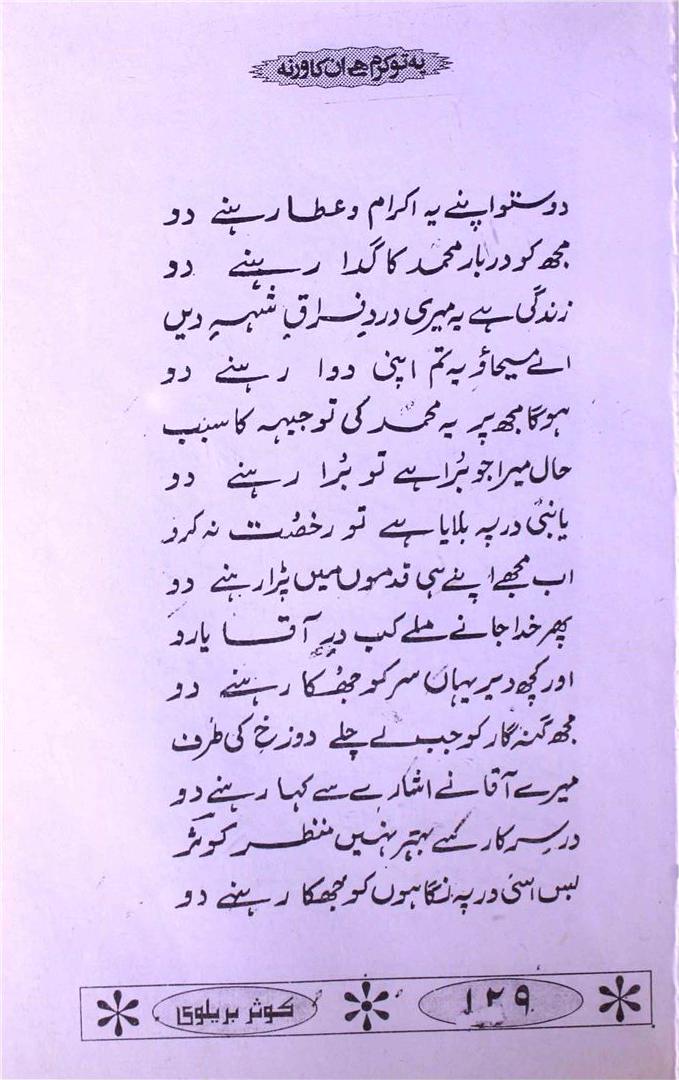 یہ تو کرم ہے ان کا ورنہ
دوستو اپنے یہ اکرام و عطا رہنے دو
مجھ کو دربار محمدؐ کا گدا رہنے دو
زندگی ہے یہ میری دردِ فراقِ شہہِ دیں
اے مسیحاؤ یہ تم اپنی دوا رہنے دو
ہوگا مجھ پر یہ محمدؐ کی توجیہہ کا سبب
حال میرا جو بُرا ہے تو بُرا رہنے دو
یا نبیؐ در پہ بلایا ہے تو رخصت نہ کرو
اب مجھے اپنے ہی قدموں میں پڑا رہنے دو
پھر خدا جانے ملے کب درِ آقا یارو
اور کچھ دیر یہاں سر کو جھُکا رہنے دو
مجھ گنہ گار کو جب لے چلے دوزخ کی طرف
میرے آقا نے اشارے سے کہا رہنے دو
درِ سرکار سے بہتر نہیں منظر کوثرؔ
بس اسی در پہ نگاہوں کو جھکا رہنے دو
۱۲۹
کوثر بریلوی